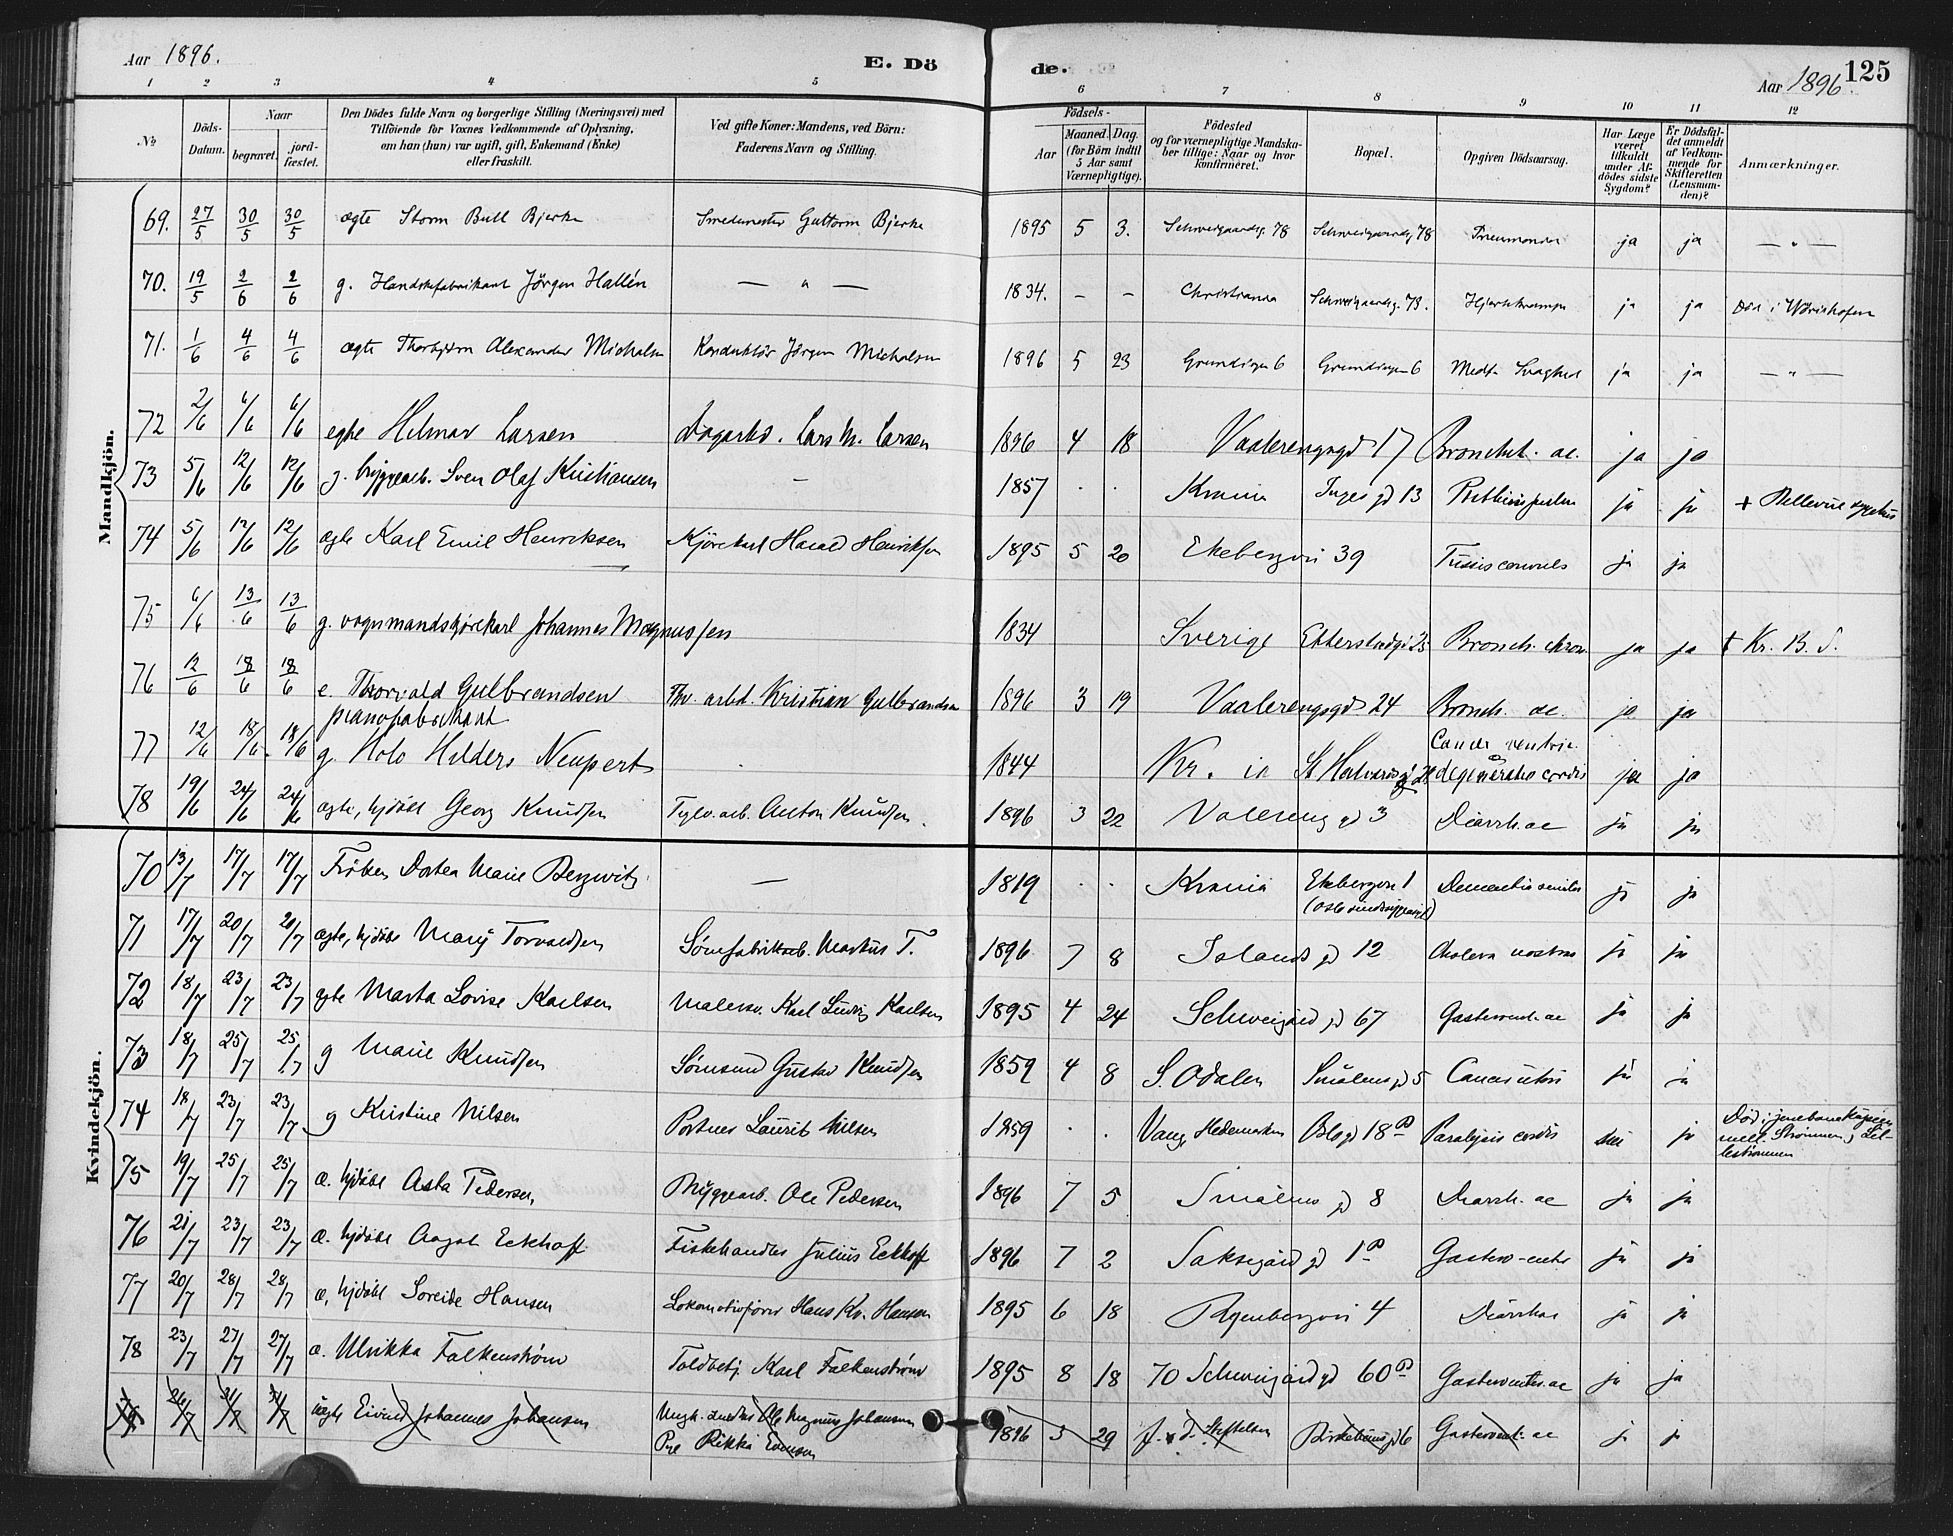 Aar 1896.
E. Dö
de.
Aar 1896.
125
1 2 3 4 5 6 7 8 9 10 11 12
No
Döds-Datum.
Naar
begravet.
jord-fæstet.
Den Dödes fulde Navn og borgerlige Stilling (Næringsvei) med
Tilföiende for Voxnes Vedkommende af Oplysning,
om han (hun) var ugift, gift, Enkemand (Enke)
eller fraskilt.
Ved gifte Koner: Mandens, ved Börn:
Faderens Navn og Stilling.
Födsels-
Aar
Maaned.
Dag.
(for Börn indtil
5 Aar samt
Værnepligtige).
Födested
og for værnepligtige Mandska-
ber tillige: Naar og hvor
konfirmeret.
Bopæl.
Opgiven Dödsaarsag.
Har Læge
været
tilkaldt
under Af-
dödes sidste
Sygdom?
Er Dödsfal-
det anmeldt
af Vedkom-
mende for
Skifteretten
(Lensman-
den)?
Anmærkninger.
Mandkjön.
69. 27/5 30/5 30/5 ægte Storm Bull Bjerke Smedemester Guttorm Bjerke 1895 5 3. Schweigaardsg. 78 Schweigaardsg. 78 Pneumonia ja ja — " —
70. 19/5 2/6 2/6 g. Handskefabrikant Jörgen Hallén — " — 1834. – – Christiania Schweigaardsg. 73. Hjertekrampe ja ja Död i Wörishofen
71. 1/6 4/6 4/6 ægte Thorbjörn Alexander Michalsen Konduktör Jörgen Michalsen 1896 5 23 Grundingen 6 Grundingen 6 Medf. Svaghed ja ja — " —
72 2/6 6/6 6/6 egte Hilmar Larsen Dagarbd. Lars M. Larsen 1896 4 18 Vaalerengsgd 17 Bronchit. ac. ja ja
73 5/6 12/6 12/6 g. bryggearb. Sven Olaf Kristiansen – 1857 . . Krania Inges gd 13 ja ja + Bellevue sygehus
74 5/6 12/6 12/6 ægte Karl Emil Henriksen Kjörekarl Harald Henriksen 1895 5 20 Ekebergvei 39 Tussis convuls ja ja
75 6/6 13/6 13/6 g. vognmandskjörekarl Johannes Magnussen 1834 Sverige Etterstadgd 23 Bronch. chron. ja ja + Kr. B. S.
76 12/6 18/6 18/6 e. Thorvald Gulbrandsen Thv. arbd. Kristian Gulbrandsen 1896 3 19 Vaalerengsgd 24 Bronch. ac. ja ja
pianofabrikant
77 12/6 18/6 18/6 g. Holo Hilders Neupert . 1844 Kr. ia St Halvards gd Cancer ventric. degeneratio cordis ja ja
78 19/6 24/6 24/6 ægte, hjdöbt Georg Knudsen Teglv. arb. Anton Knudsen. 1896 3 22 Valereng gd 3 Diarrh. ac ja ja
Kvindekjön.
70 13/7 17/7 17/7 Fröken Dortea Marie Bergwitz — 1819 . . Krania Ekebergvei 1 Dementia senilis ja ja
71 17/7 20/7 20/7 ægte, hjdöbt Mary Torvaldsen Sömfabrikarb. Markus T. 1896 7 8 Islands gd 12 Cholera nostras ja ja
72 18/7 23/7 23/7 egte Marta Lovise Karlsen Malersv. Karl Ludvig Karlsen 1895 4 24 Schweigård gd 67 Gasteroent. ac ja ja
73 18/7 25/7 25/7 g Marie Knudsen Sömand Gustav Knudsen 1859 4 8 S. Odalen Smålens gd 5 Cancer uteri ja ja
74 18/7 23/7 23/7 g Kristine Nilsen Portner Laurits Nilsen 1859 . . Vang Hedemarken Oslo gd 18 B Paralysis cordis nei ja Död i jernbanekupeen
mell. Strömmen & Lil-
leströmmen
75 19/7 25/7 25/7 æ. hjdöbt Asta Pedersen Bryggearb. Ole Pedersen 1896 7 5 Smålens gd 8 Diarrh. ac ja ja
76 21/7 23/7 23/7 æ. hjdöbt Aagot Eckhoff Fiskehandler Julius Eckhoff 1896 7 2 Saksegård gd 1 B Gastero-enter ja ja
77 20/7 28/7 28/7 æ, hjdöbt Soreide Hansen Lokomotivförer Hans Kr. Hansen 1895 6 18 Ryenbergvei 4 Diarrhae ja ja
78 23/7 27/7 27/7 æ. Ulrikka Falkenström Toldbetj. Karl Falkenström 1895 8 18 70 Schweigård gd 60 B Gasteroenter. ac ja ja
26/7 31/7 31/7 uægte Eivind Johannes Johansen Ungk. snedker Ole Magnus Johansen 1896 3 29 F. v. d. Stiftelsen Birkebeiner gd 6 Gasteroent. ac j j
Pige Rikka Evensen